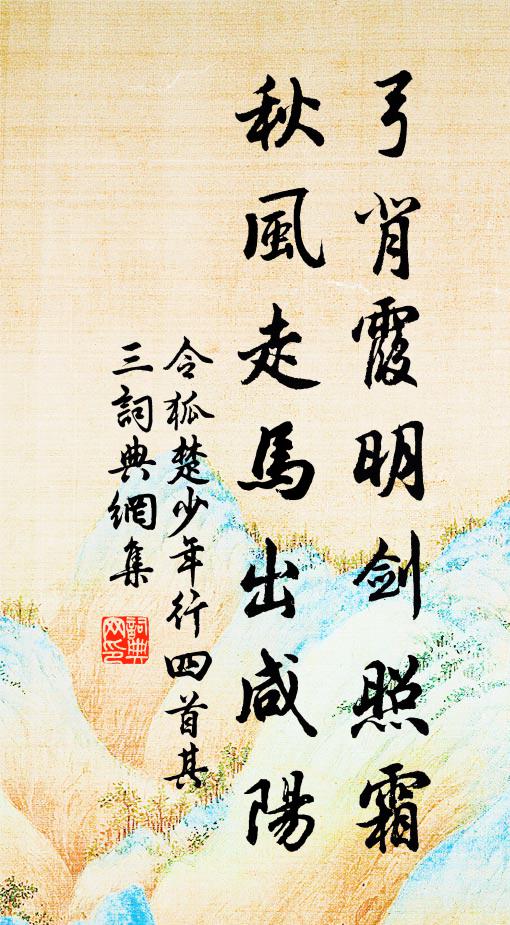 弓背霞明剑照霜
秋風走馬出咸陽
令狐楚少年行四首其
三詞典網集
詞典
网印